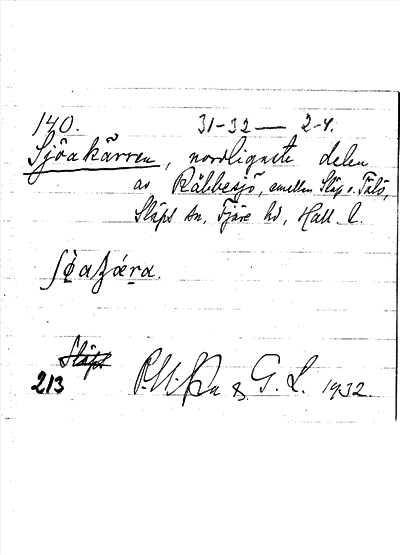 140. 31-32 — 2-4.
Sjöakärren, nordligaste delen
av Råbbesjö, emellan Släp o. Tölö,
Släps sn, Fjäre hd, Hall. l.
213 Släps
G. L. 1932.